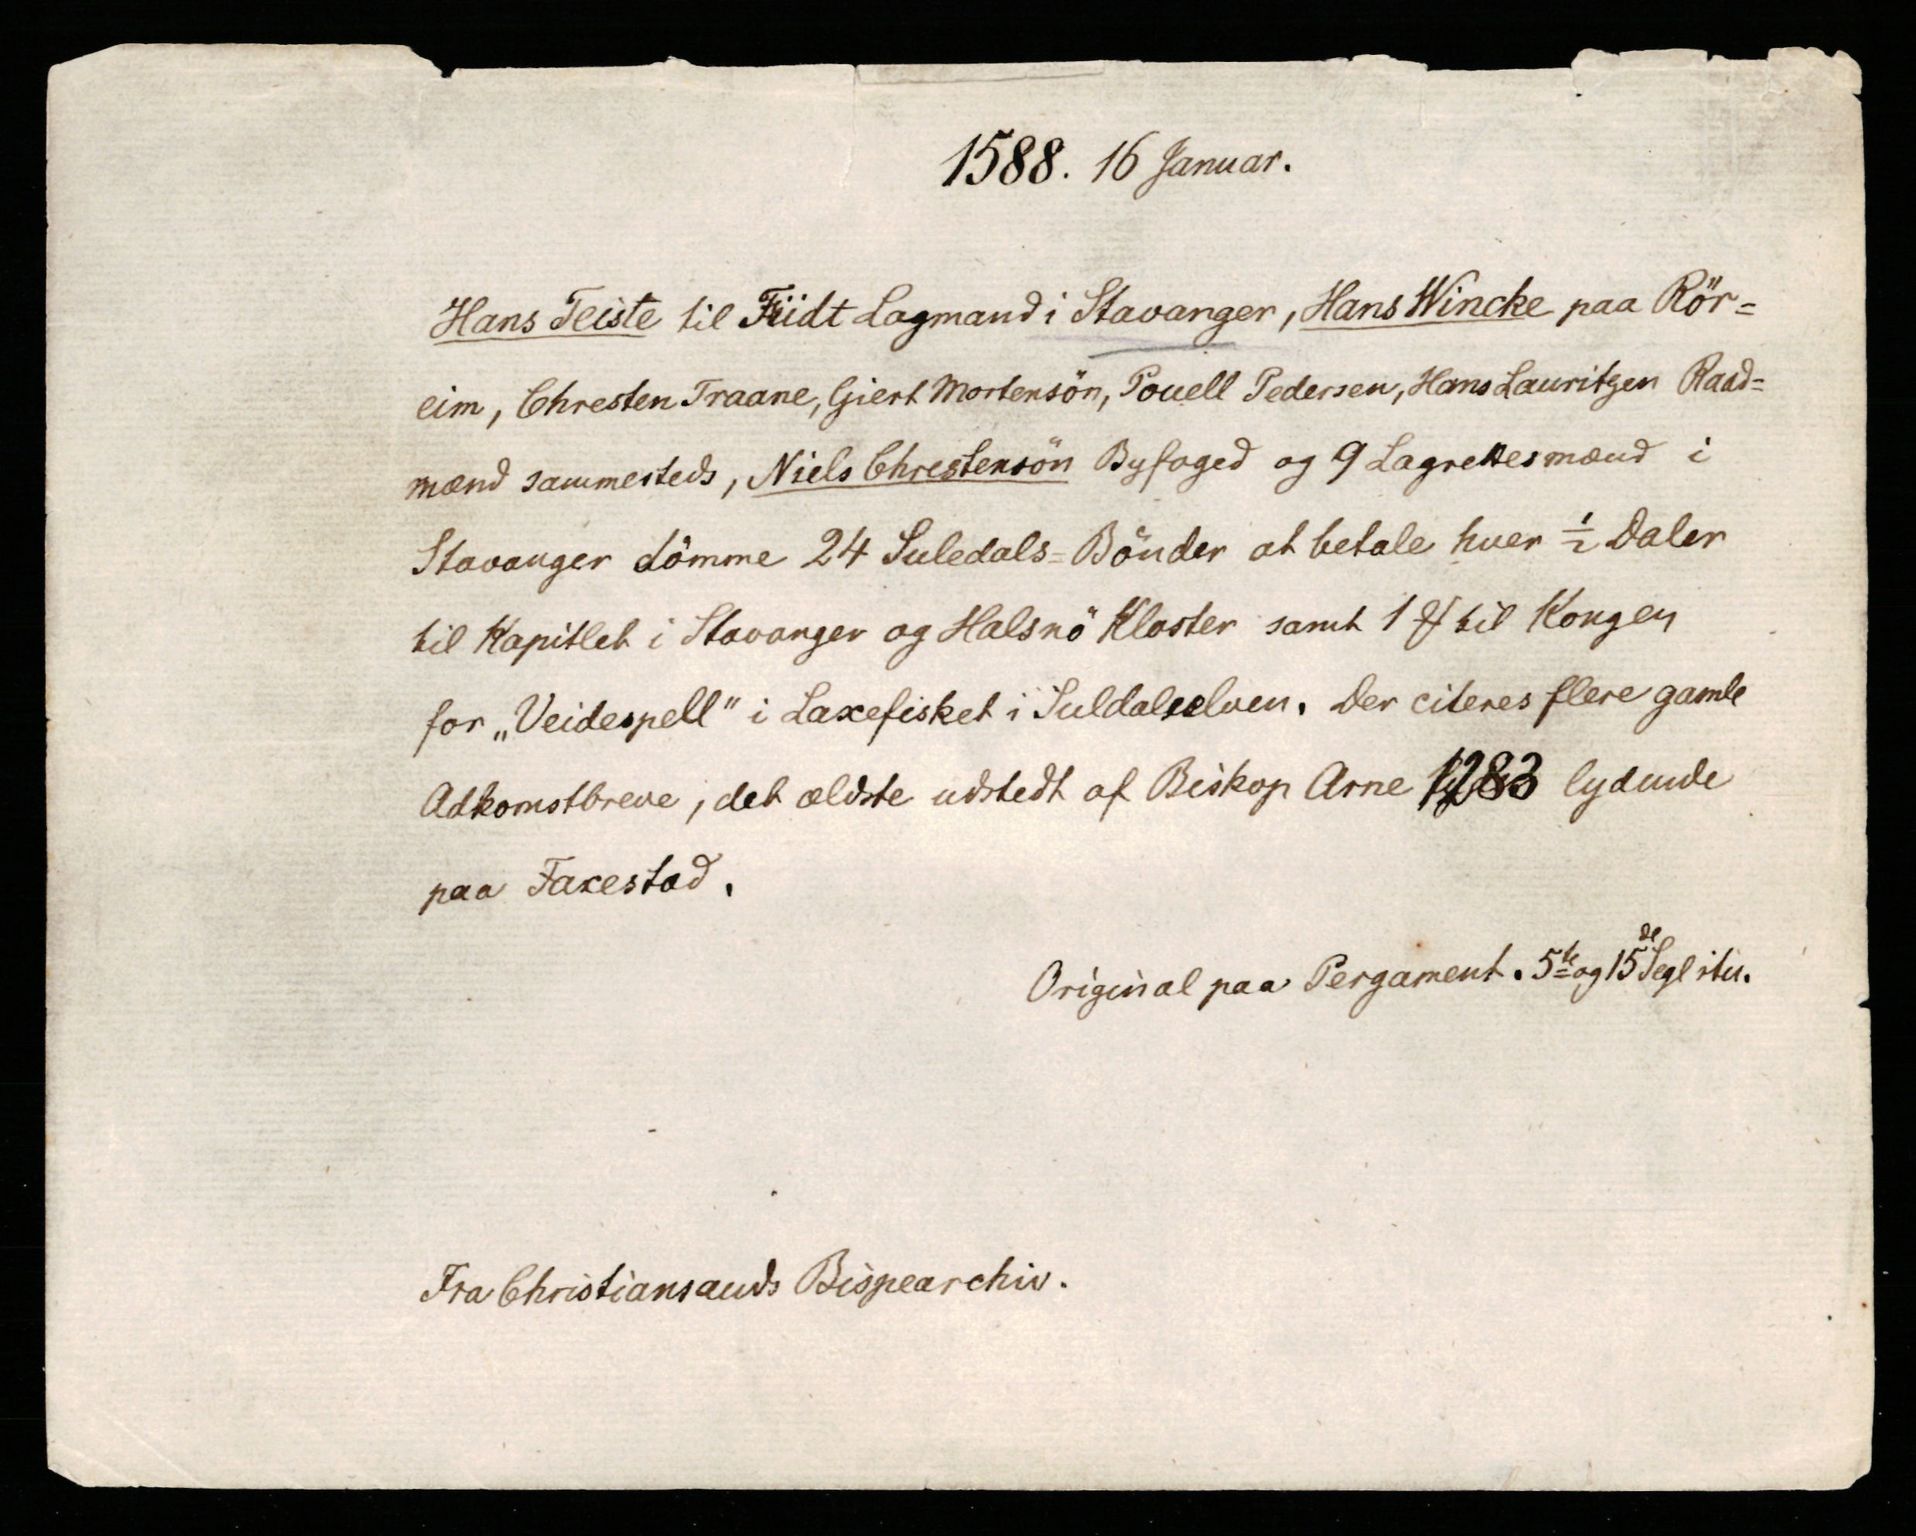 1588. 16 Januar.
Hans Teiste til Fiidt Lagmand i Stavanger, Hans Wincke paa Rör=
eim, Chresten Traane, Giert Mortensön, Pouell Pedersen, Hans Lauritzen Raad=
mænd sammesteds, Niels Chrestensön Byfoged og 9 Lagrettesmænd i
Stavanger dömme 24 Suledals=Bönder at betale hver ½ Daler
til Kapitlet i Stavanger og Halsnö Kloster samt 1 til Kongen
for „Veidespell" i Laxefisket i Suldalselven. Der citeres flere gamle
Adkomstbreve, det ældste udstedt af Biskop Arne 1283 lydende
paa Faxestad.
Original paa Pergament. 5te og 15de Segl itu.
Fra Christiansands Bispearchiv.